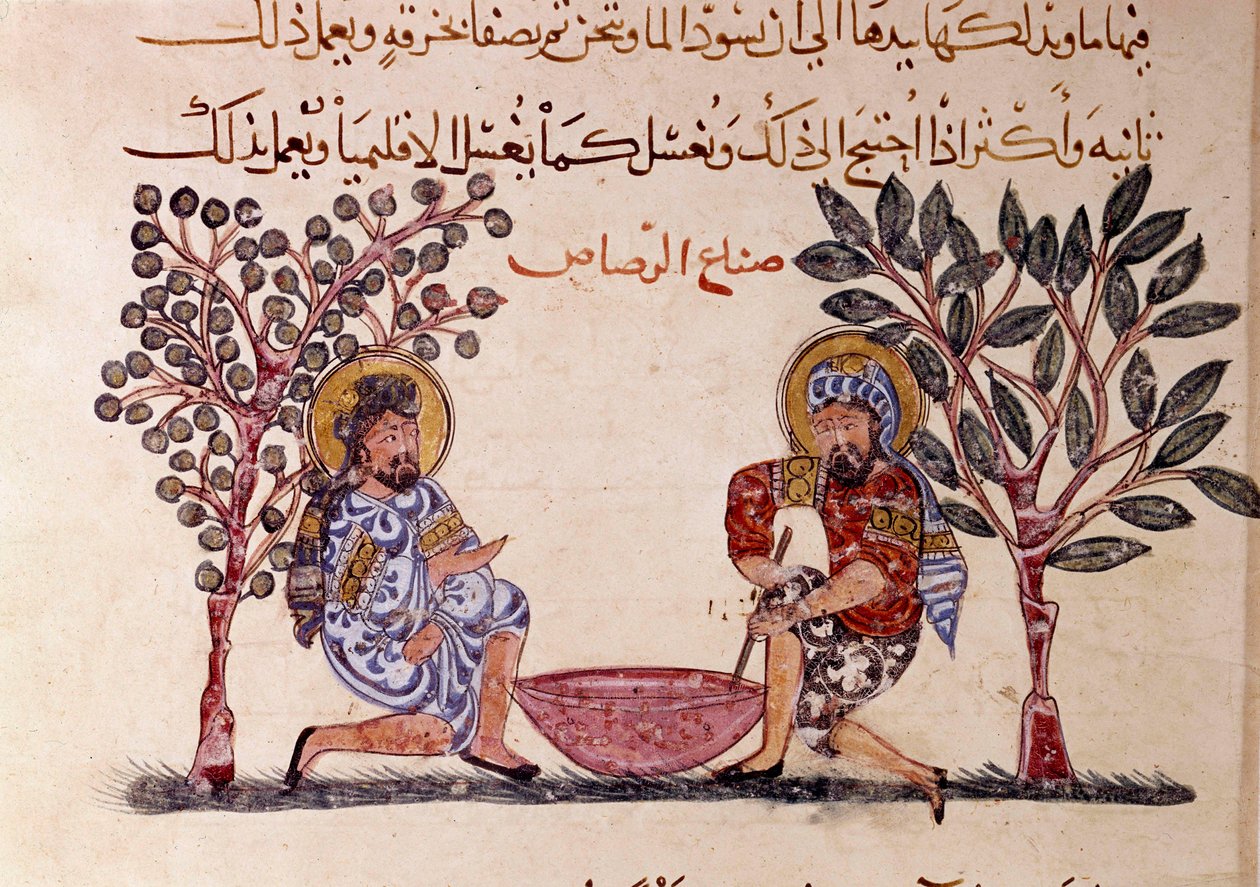 فيها ما ويدلكها بيدها الى ان يسودّ الما ويثخن ثم يصفا بخرقةٍ ويعمل ذلك
ثانيه وَأكْثر اذا اُحتيج الى ذلكَ وَيُغسَل كمَا يُغسَل الاقليمياْ ويُعمل بذلكْ
صناع الرّصاص